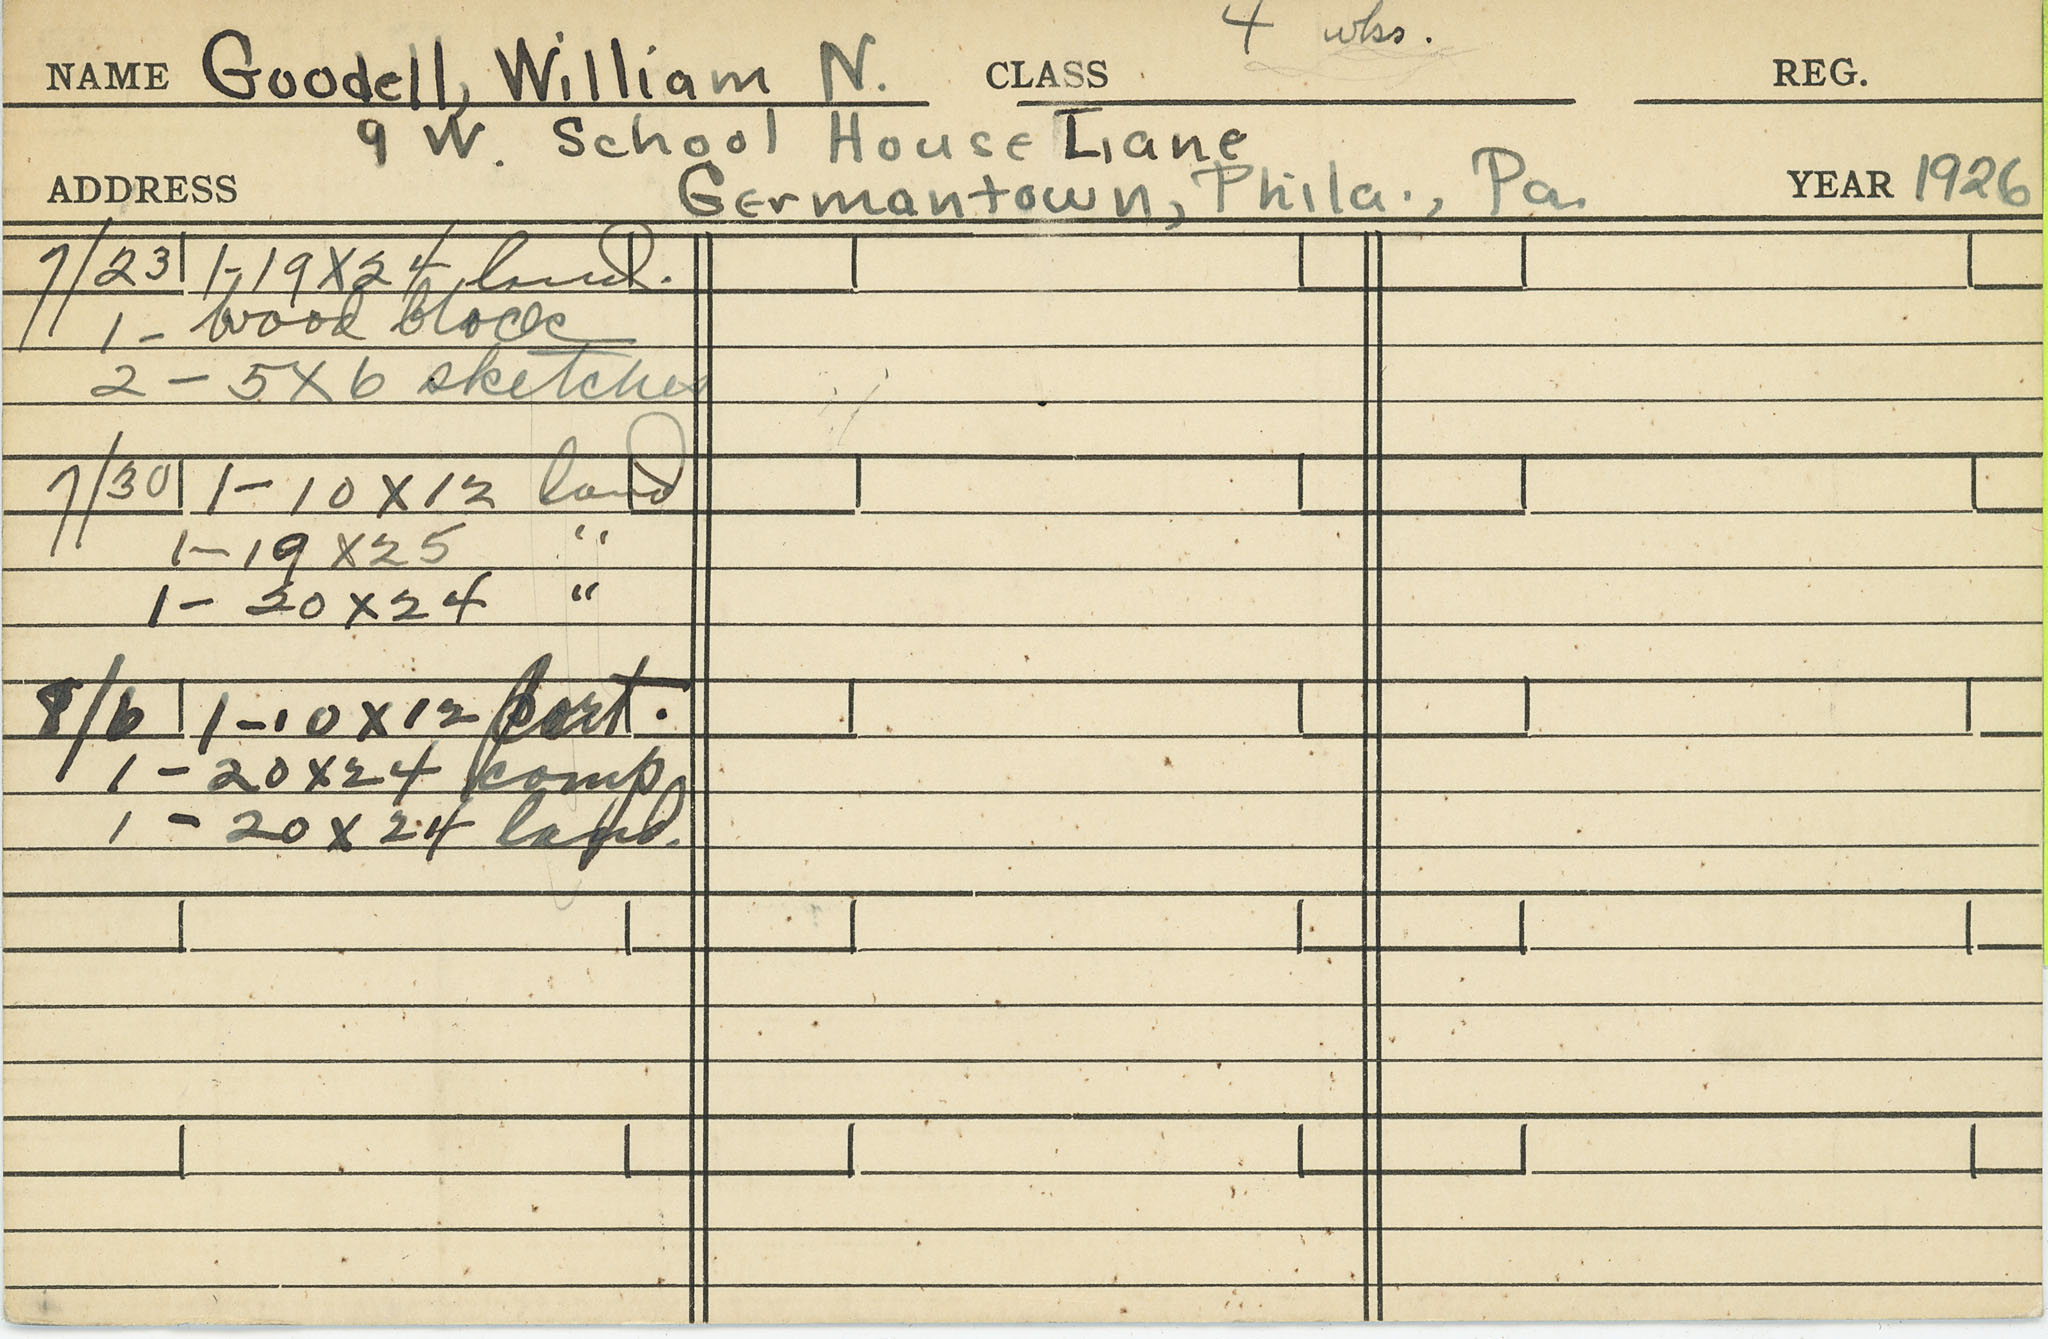 4 wks.
NAME Goodell, William N. CLASS REG.
9 W. School House Lane
ADDRESS Germantown, Phila., Pa. YEAR 1926
7/23 1-19X24 land.
1- wood block
2 - 5X6 sketches
7/30 1- 10 X 12 land
1- 19 X25 "
1- 20 X 24 "
8/6 1-10 X 12 port.
1 - 20X24 comp.
1 - 20 X 24 land.